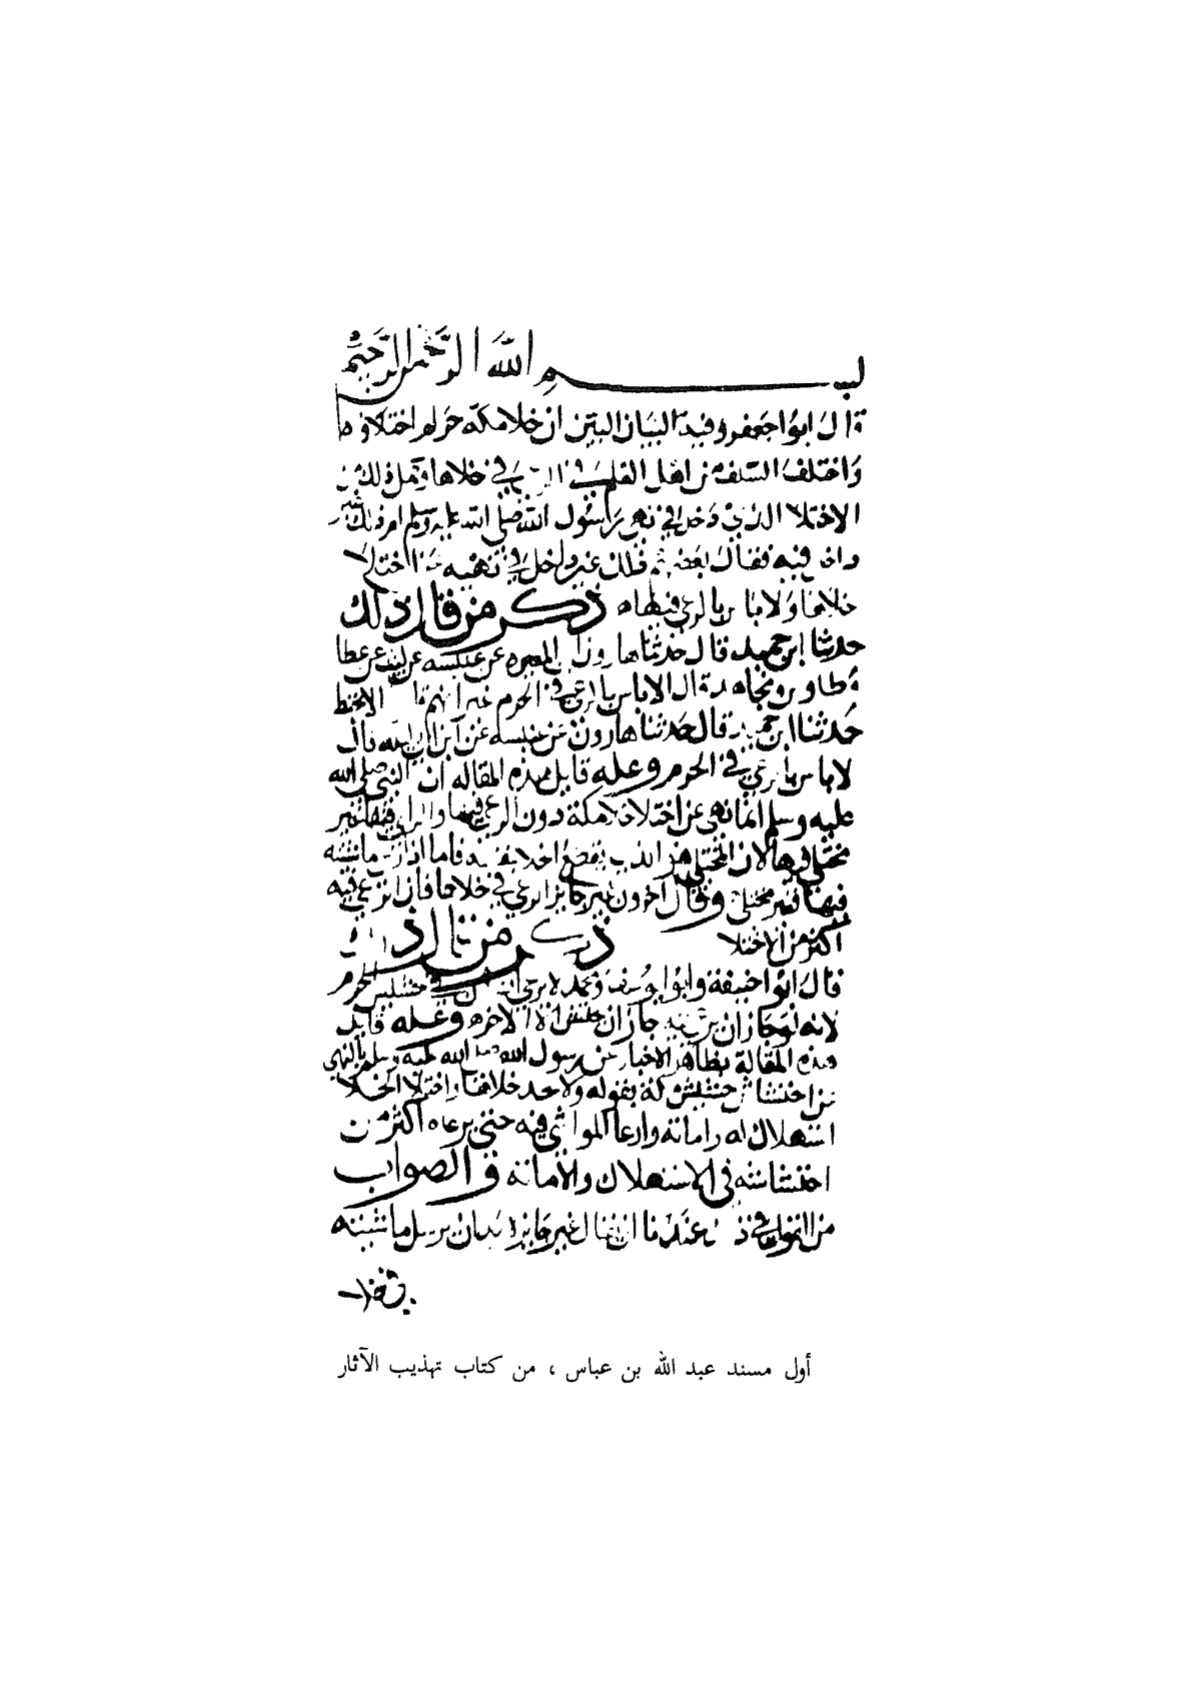 بسم الله الرحمن الرحيم
قال ابو جعفر وفيه البيان البين ان خلا مكة حرام اختلاوها
واختلف السلف من اهل العلم في الرعي في خلاها وهل ذلك من
الاختلا الذي دخل في نهي رسول الله صلى الله عليه وسلم ام ذلك غير
داخل فيه فقال بعضهم ذلك غير داخل في نهيه عن اختلا
خلاها ولا باس بالرعي فيها ذكر من قال ذلك
حدثنا ابن حميد قال حدثنا هارون بن المغيرة عن عنبسه عن ليث عن عطا
وطاوس ومجاهد قال لا باس بالرعي في الحرم غير انهم لا يخبط
حدثنا ابن حميد قال حدثنا هارون عن عنبسه عن ابن ابي ليلى قال
لا باس بالرعي في الحرم وعله قايل هذه المقاله ان النبي صلى الله
عليه وسلم انما نهى عن اختلا خلا مكة دون الرعي فيها والراعي فيها غير
مختلي فيها لان المختلي هو الذي يقطع الخلا بنفسه فاما اذا ارسل ماشيته
فيها فغير مختلي وقال اخرون غير جايز الرعي في خلاها فان الرعي فيه
اكثر من الاختلا ذكر من قال ذلك
قال ابو حنيفة وابو يوسف ومحمد لا يرعى انسان في حشيش الحرم
لانه لو جاز ان يرعى فيه جاز ان يحتش الا الاذخر وعله قايل
هذه المقالة بظاهر الاخبار عن رسول الله صلى الله عليه وسلم بالنهي
عن احتشاش حشيش مكة بقوله ولا يحد خلاها واختلا الخلا
استهلاك له وامانه وارعا المواشي فيه حتى يرعاه اكثر من
احتشاشه في الاستهلاك والامانة والصواب
من القول في ذلك عندنا ان يقال غير جايز لاحد ان يرسل ماشيته
في خلا
أول مسند عبد الله بن عباس ، من كتاب تهذيب الآثار